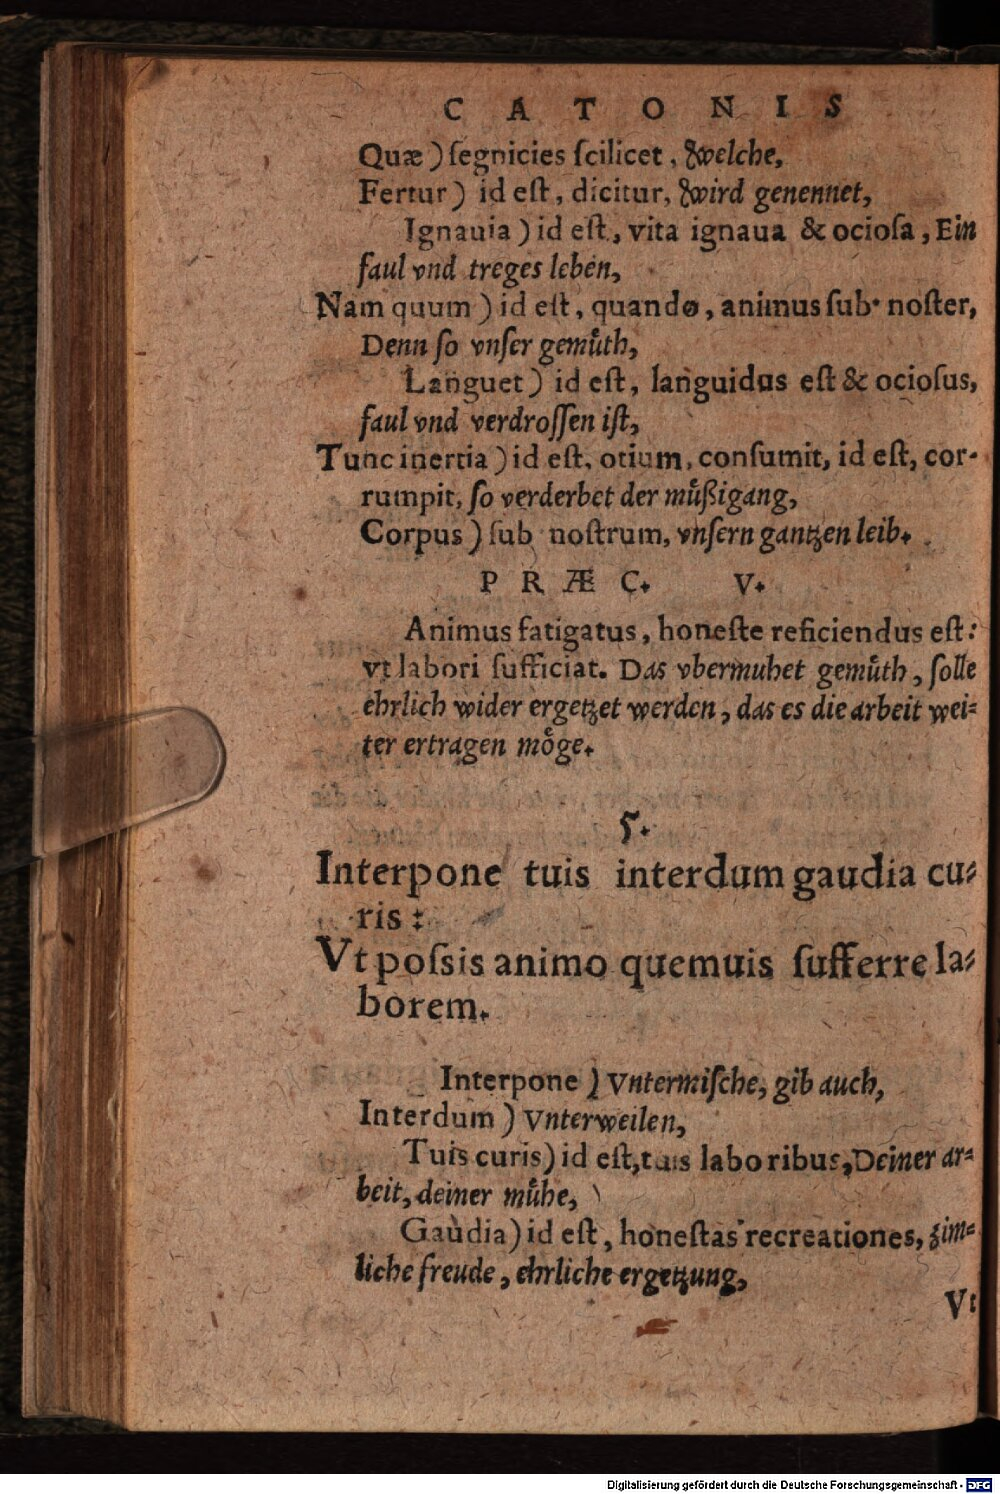 C A T O N I S
Quæ) ſegnicies ſcilicet, welche,
Fertur) id eſt, dicitur, wird genennet,
Ignauia) id eſt, vita ignaua & ocioſa, Ein
faul vnd treges leben,
Nam quum) id eſt, quando, animus ſub· noſter,
Denn ſo vnſer gemuͤth,
Languet) id eſt, languidus eſt & ocioſus,
faul vnd verdroſſen iſt,
Tunc inertia) id eſt, otium, conſumit, id eſt, cor-
rumpit, ſo verderbet der muͤßigang,
Corpus) ſub noſtrum, vnſern gantzen leib.
P R Æ C. V.
Animus fatigatus, honeſte reficiendus eſt:
vt labori ſufficiat. Das vbermuhet gemuͤth, ſolle
ehrlich wider ergetzet werden, das es die arbeit wei-
ter ertragen moͤge.
5.
Interpone tuis interdum gaudia cu-
ris:
Vt poſsis animo quemuis ſufferre la-
borem.
Interpone) Vntermiſche, gib auch,
Interdum) Vnterweilen,
Tuis curis) id eſt, tuis laboribus, Deiner ar-
beit, deiner muͤhe,
Gaudia) id eſt, honeſtas recreationes, zim-
liche freude, ehrliche ergetzung,
Vt
Digitalisierung gefördert durch die Deutsche Forschungsgemeinschaft - DFG